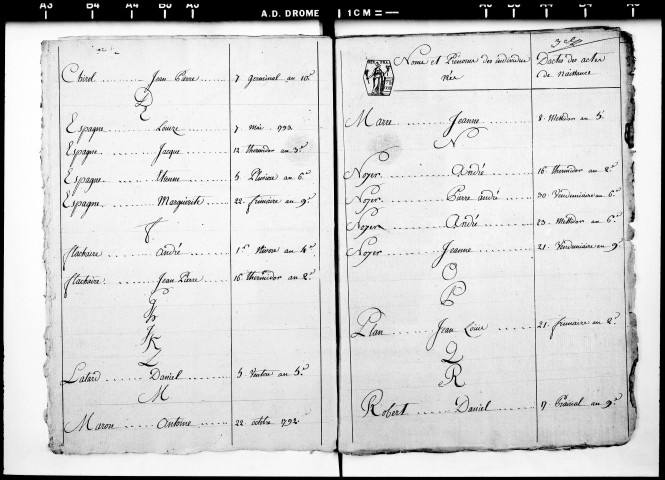 A3 B4 A4 B5 A5 A.D. DROME 1 CM A5 B5 A4 B4 A3
Chirol Jean Pierre 7 germinal an 10e
E
Espagne Louize 7 mai 1793
Espagne Jacque 12 thermidor an 3e
Espagne Etienne 5 Pluviose an 6e
Espagne Marguérite 22 frimaire an 9e
f
flachaire andré 1er Nivose an 4e
flachaire Jean Pierre 16 thermidor an 2e
G
h
J
K
L
Latard Daniel 5 Ventose an 5e
M
Maron antoine 22 octobre 1792
Noms et Prénoms des individus
nés
Dactes des actes
de naissance
Marre Jeanne 8 Messidor an 5
N
Noyer André 16 thermidor an 2e
Noyer Pierre andré 30 Vendemiaire an 6e
Noyer André 23 Messidor an 6e
Noyer Jeanne 21 Vendemiaire an 9e
O
P
Plan Jean Louis 21 frimaire an 2e
Q
R
Robert Daniel 17 Prairial an 9e